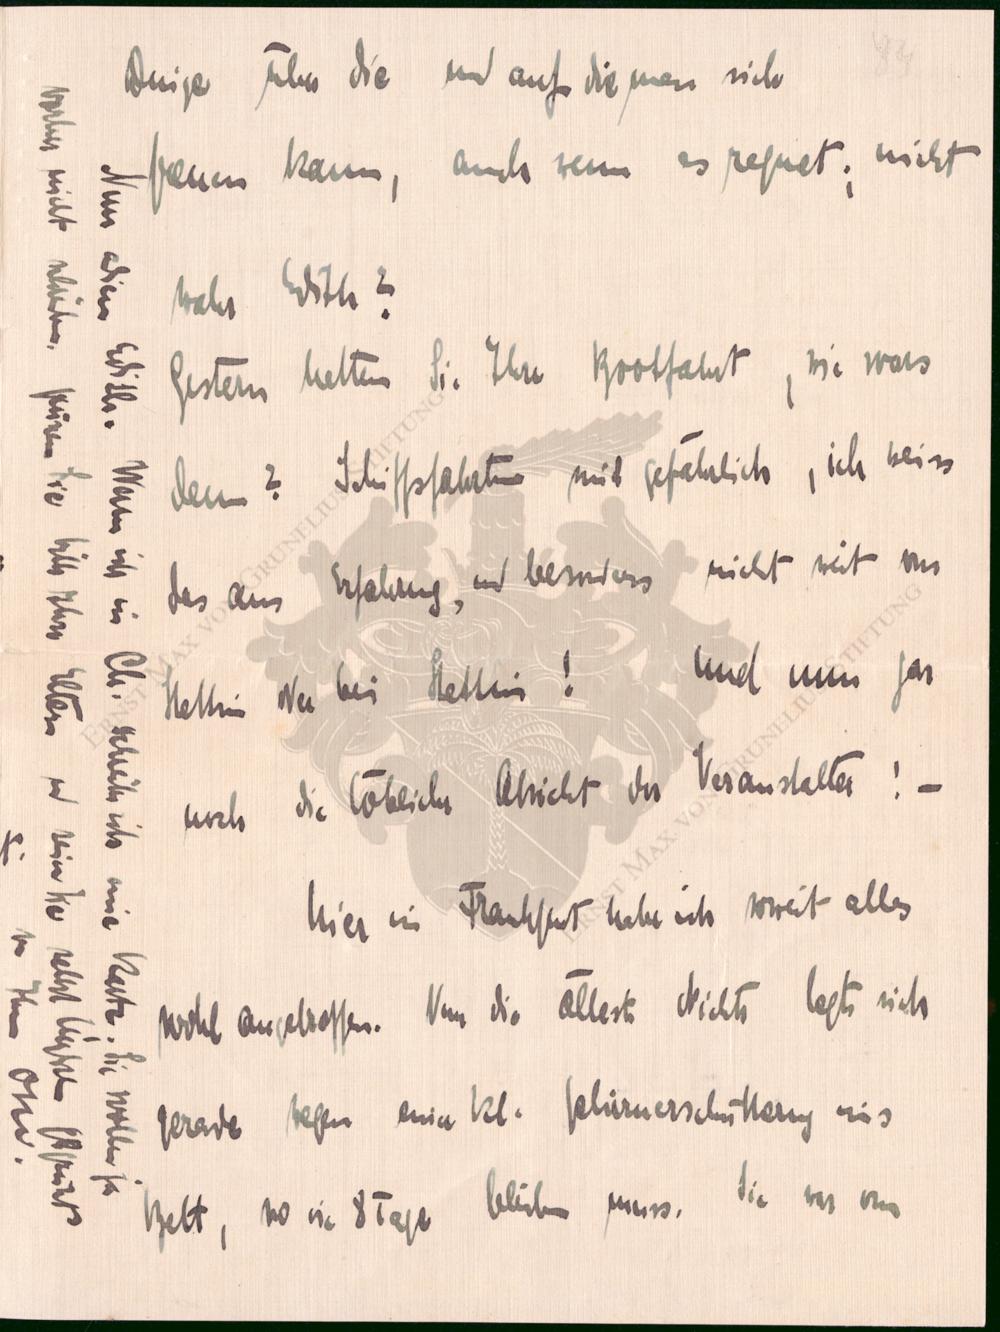 Dinge über die und auf die man sich
freuen kann, auch wenn es regnet; nicht
wahr Edith?
Gestern hatten Sie Ihre Bootfahrt, wie wars
denn? Schiffsfahrten sind gefährlich, ich weiss
das aus Erfahrung, und besonders nicht weit von
Stettin oder bei Stettin! Und nun gar
noch die löbliche Absicht der Veranstalter! –
Hier in Frankfurt habe ich soweit alles
wohl angetroffen. Nur die älteste Nichte legte sich
gerade wegen einer kl. Gehirnerschütterung ins
Bett, wo sie 8 Tage bleiben muss. Sie war von
Nun adieu Edith. Wenn ich in Ch. schreib ich eine Karte. Sie wollen ja
vorher nicht schreiben. Grüssen Sie bitte Ihre Eltern und seien Sie selbst herzlich gegrüsst
von Ihrem
Otto.
ERNST MAX VON GRUNELIUS STIFTUNG
ERNST MAX VON GRUNELIUS STIFTUNG